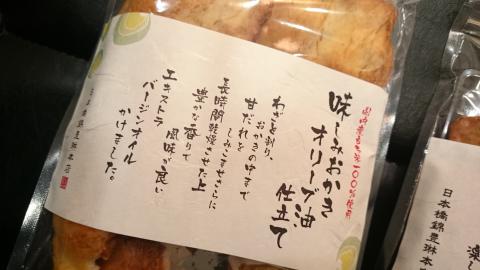 国内産もち米一〇〇%使用
味しみおかき
オリーブ油
仕立て
わざと割り、
おかきの中まで
甘だれを
しみこませさらに
長時間乾燥させた上
豊かな香りで
風味が良い
エキストラ
バージンオイル
かけました。
日本橋錦豊琳本店
日本橋錦豊琳本